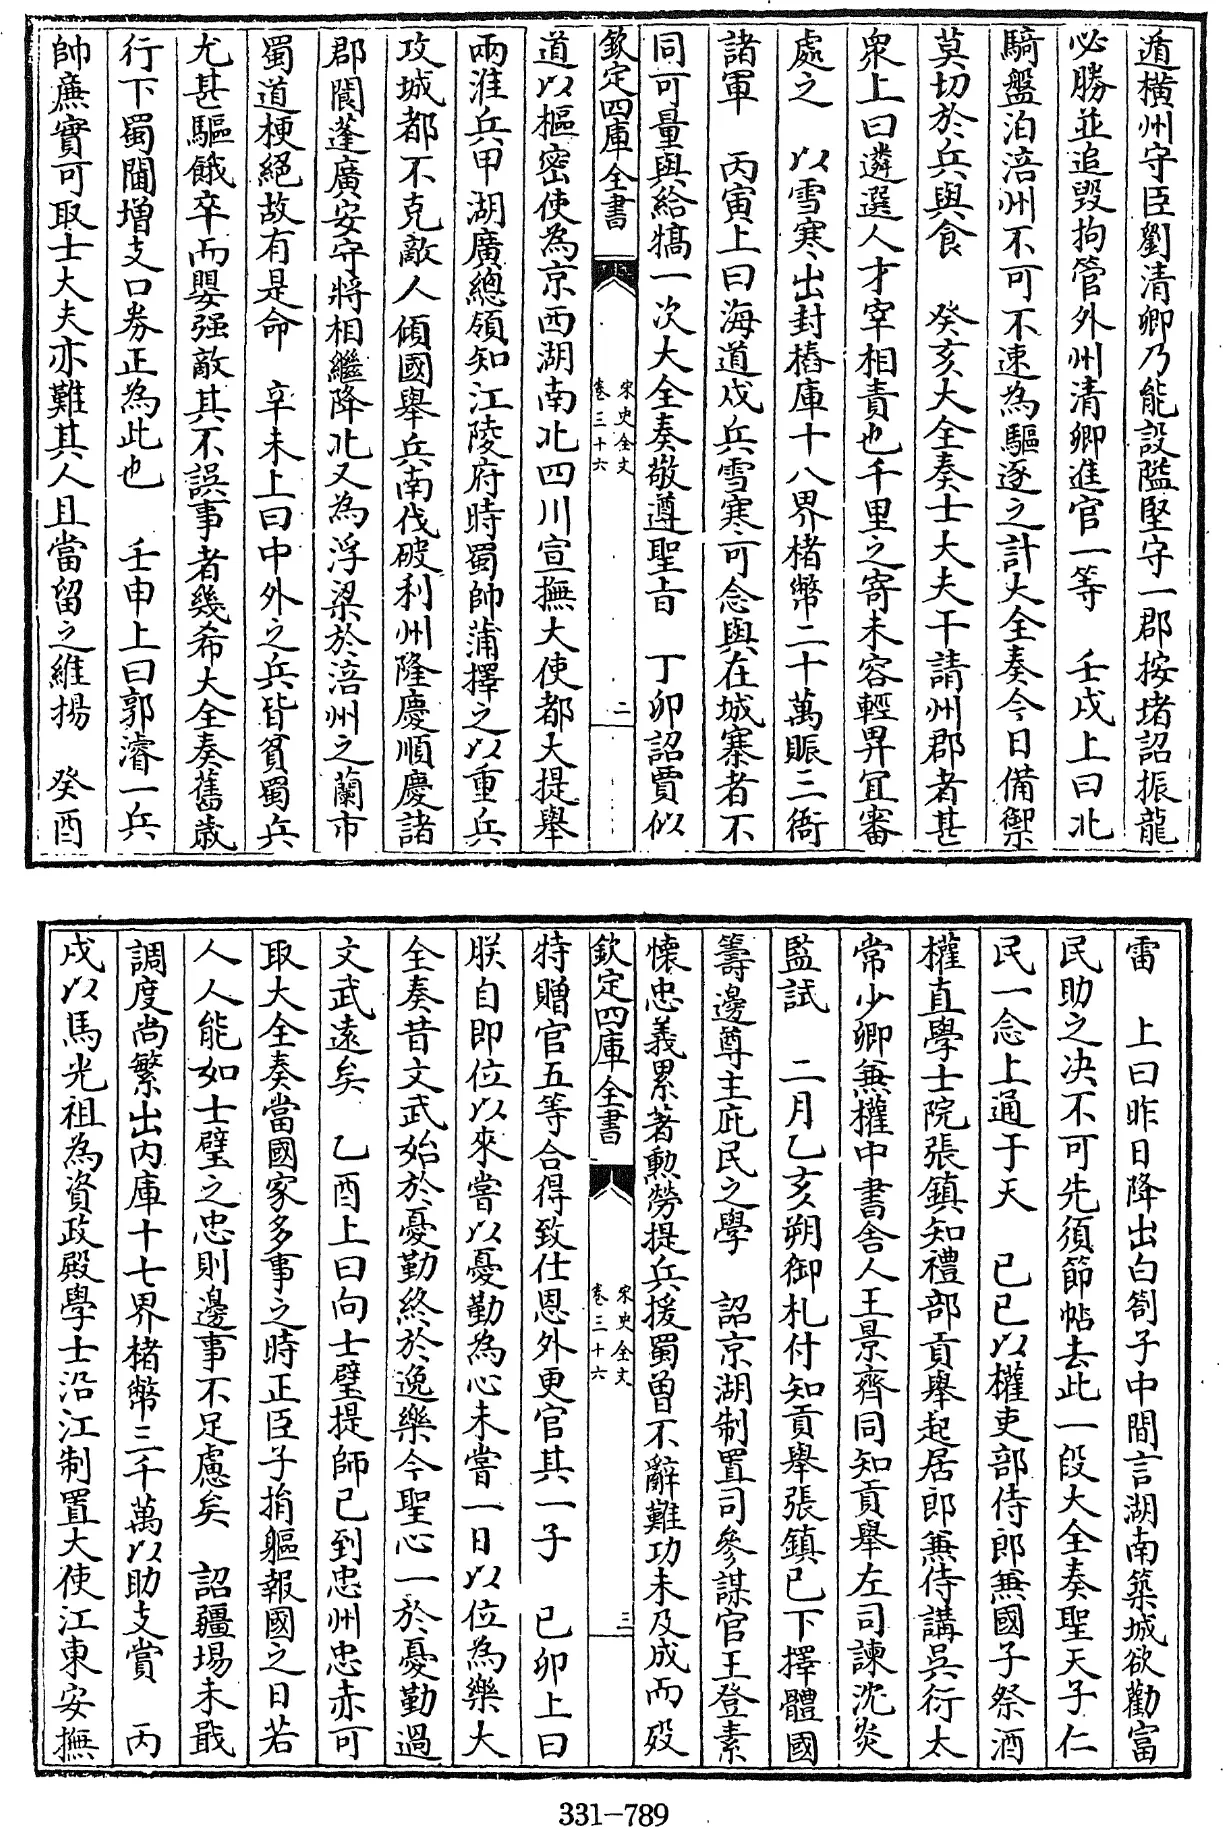 遁橫州守臣劉清卿乃能設隘堅守一郡按堵詔振龍
必勝並追毀拘管外州清卿進官一等　壬戌上曰北
騎盤泊涪州不可不速為驅逐之計大全奏今日備禦
莫切於兵與食　癸亥大全奏士大夫干請州郡者甚
衆上曰遴選人才宰相責也千里之寄未容輕畀宜審
處之　以雪寒出封樁庫十八界楮幣二十萬賑三衙
諸軍　丙寅上曰海道戍兵雪寒可念與在城寨者不
同可量與給犒一次大全奏敬遵聖旨　丁卯詔賈似
欽定四庫全書　宋史全文卷三十六　二
道以樞密使為京西湖南北四川宣撫大使都大提舉
兩淮兵甲湖廣總領知江陵府時蜀帥蒲擇之以重兵
攻城都不克敵人傾國舉兵南伐破利州隆慶順慶諸
郡閬蓬廣安守將相繼降北又為浮梁於涪州之藺市
蜀道梗絕故有是命　辛未上曰中外之兵皆貧蜀兵
尤甚驅餓卒而嬰强敵其不誤事者幾希大全奏舊歲
行下蜀閫增支口券正為此也　壬申上曰郭濬一兵
帥廉實可取士大夫亦難其人且當留之維揚　癸酉
雷　上曰昨日降出白劄子中間言湖南築城欲勸富
民助之決不可先須節帖去此一段大全奏聖天子仁
民一念上通于天　已巳以權吏部侍郎兼國子祭酒
權直學士院張鎮知禮部貢舉起居郎兼侍講吳衍太
常少卿兼權中書舍人王景齊同知貢舉左司諫沈炎
監試　二月乙亥朔御札付知貢舉張鎮已下擇體國
籌邊尊主庇民之學　詔京湖制置司參謀官王登素
懷忠義累著勲勞提兵援蜀曽不辭難功未及成而殁
欽定四庫全書　宋史全文卷三十六　三
特贈官五等合得致仕恩外更官其一子　己卯上曰
朕自即位以來嘗以憂勤為心未嘗一日以位為樂大
全奏昔文武始於憂勤終於逸樂今聖心一於憂勤過
文武遠矣　乙酉上曰向士璧提師已到忠州忠赤可
取大全奏當國家多事之時正臣子捐軀報國之日若
人人能如士璧之忠則邊事不足慮矣　詔疆場未戢
調度尚繁出内庫十七界楮幣三千萬以助支賞　丙
戌以馬光祖為資政殿學士沿江制置大使江東安撫
331-789